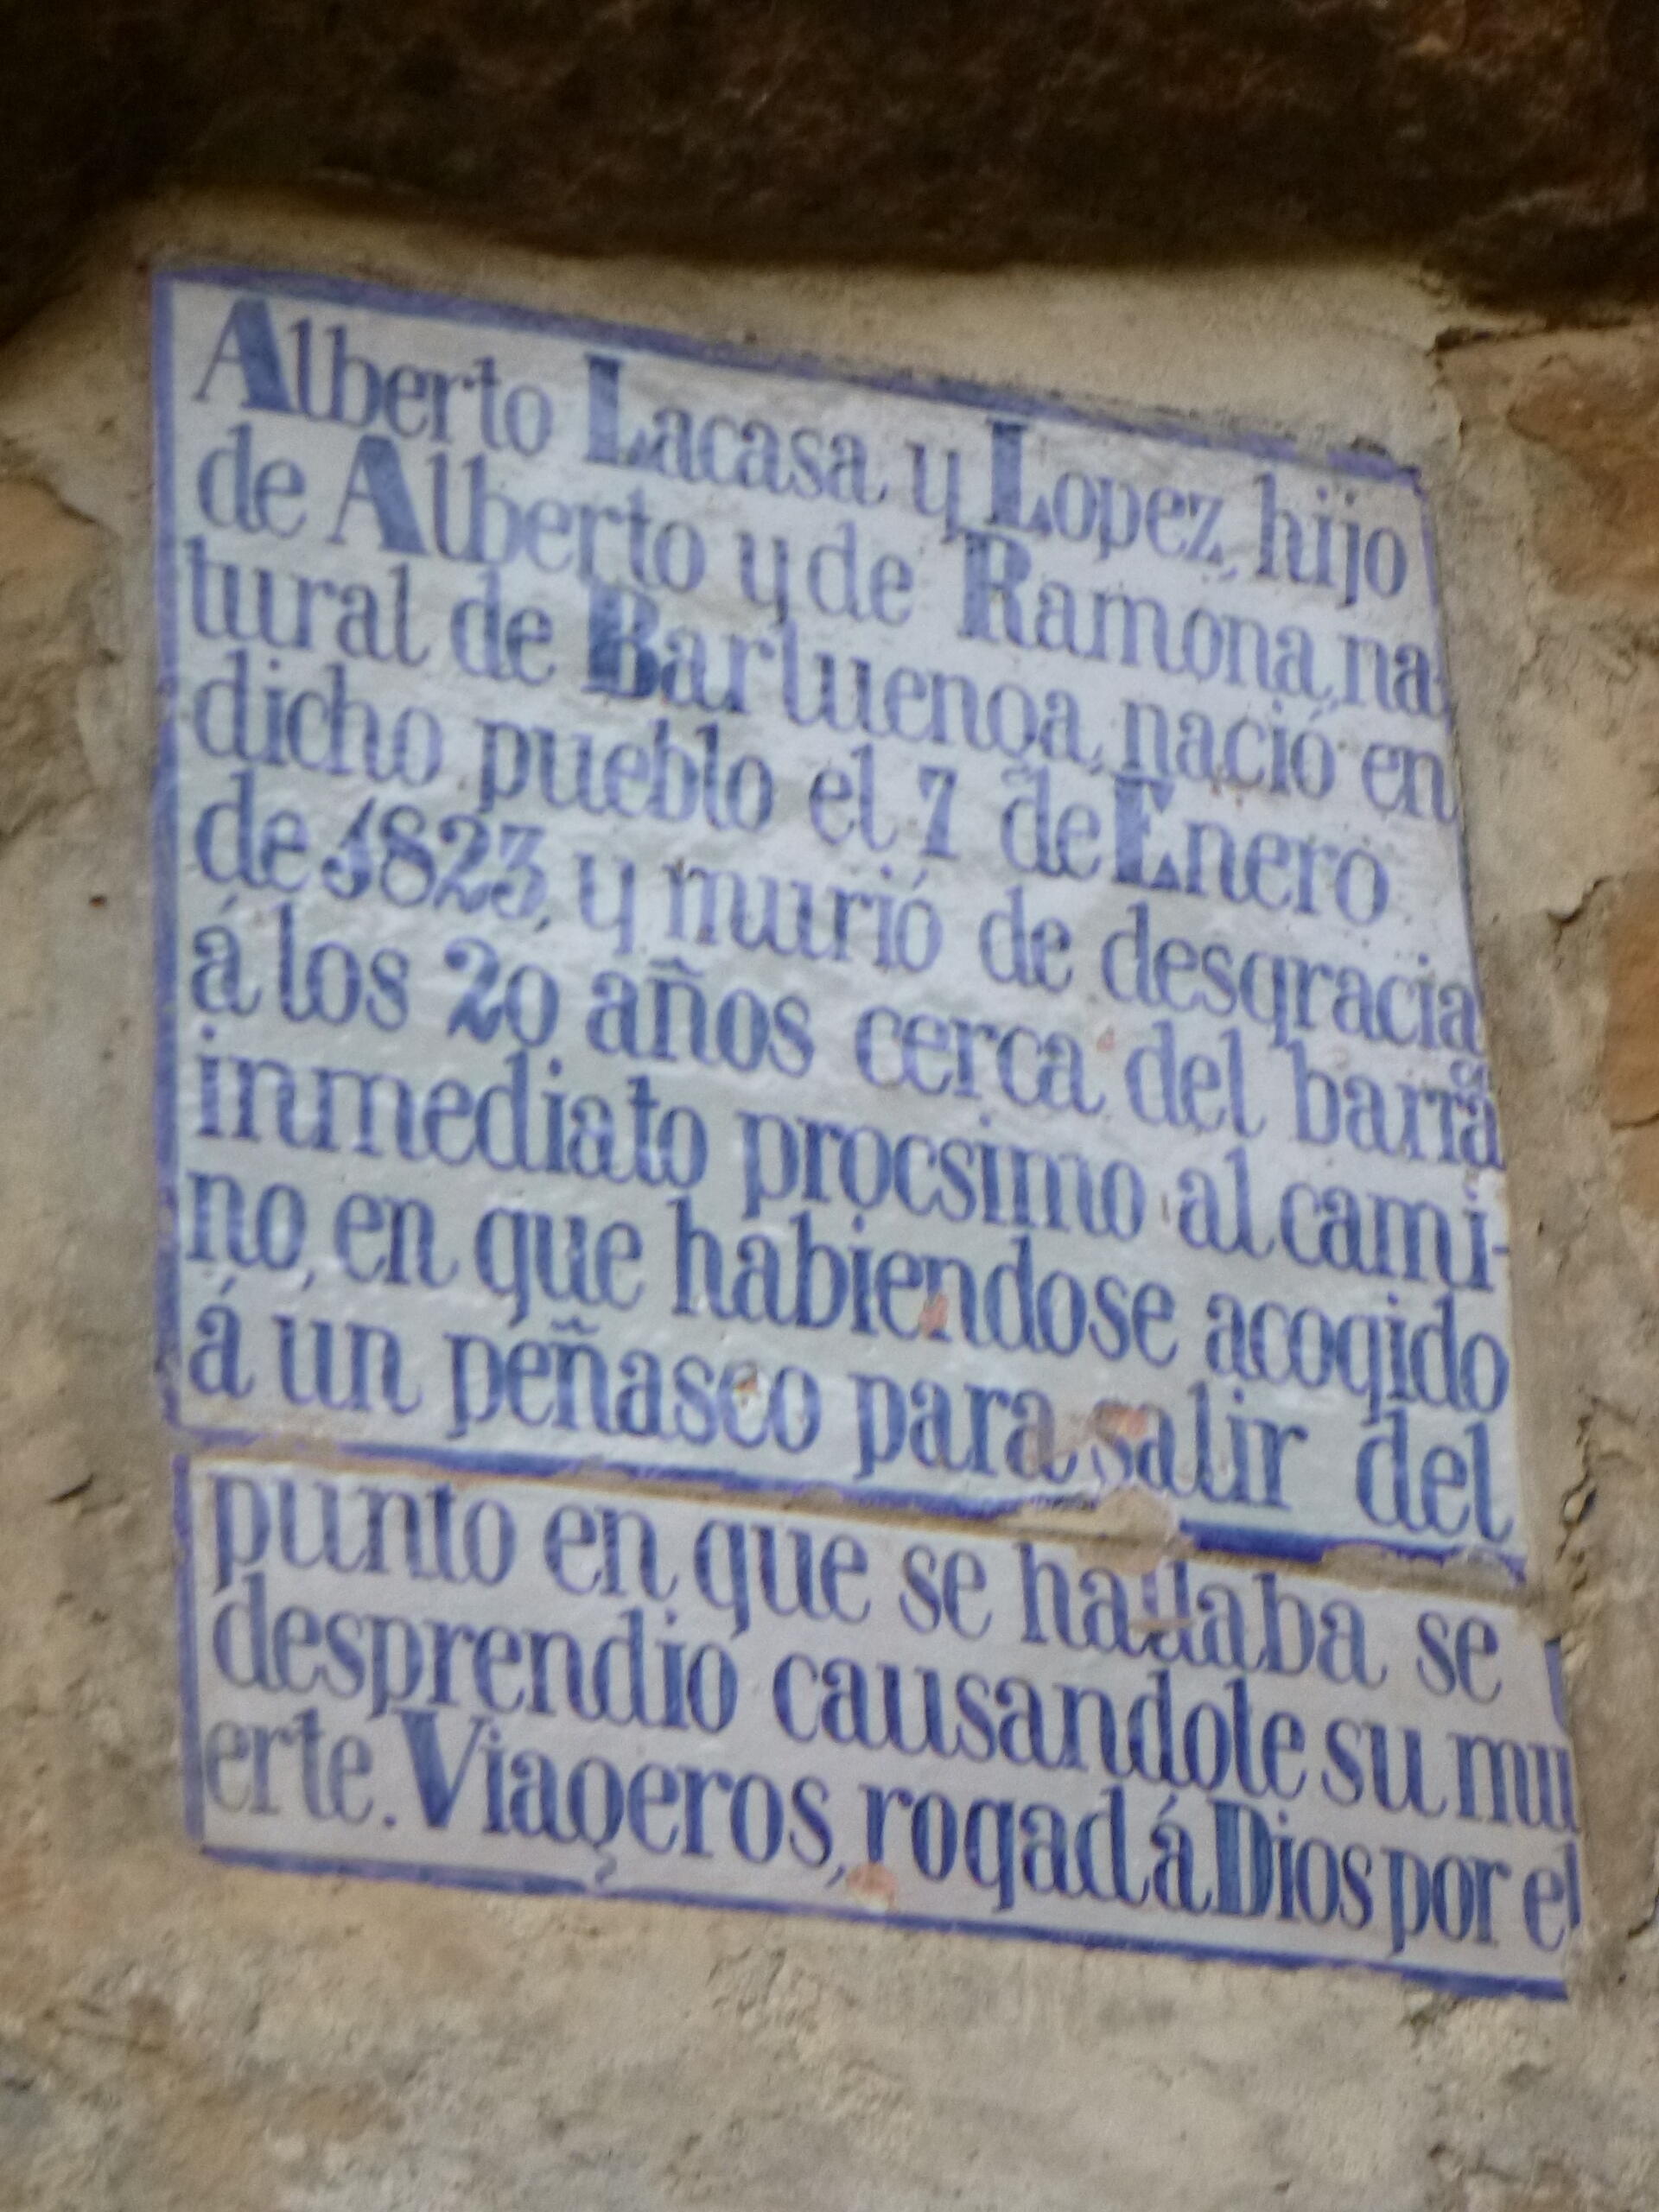 Alberto Lacasa y Lopez, hijo
de Alberto y de Ramona, na-
tural de Barluenga, nació en
dicho pueblo el 7 de Enero
de 1823, y murió de desgracia
á los 20 años cerca del barrᵒ
inmediato procsimo al cami-
no, en que habiendose acogido
á un peñasco para salir del
punto en que se hallaba se
desprendió causandole su mu
erte. Viageros, rogad á Dios por el